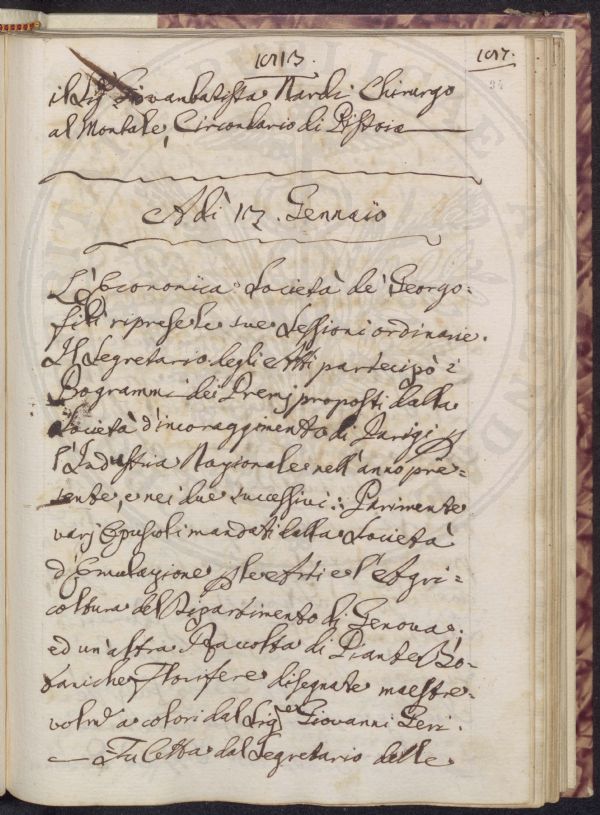 1013.
1017.
il Sig.r Giovanbatista Nardi Chirurgo
al Montale, Circondario di Pistoia
Adì 17. Gennaïo
L'Economica Società de' Georgo=
fili riprese le sue Sessioni ordinarie.
Il Segretario degli Atti partecipò i
Programmi dei Premj proposti dalla
Società d'incoraggimento di Parigi p
l'Industria Nazionale nell'anno pre=
sente, e nei due successivi: Parimente
varj Opuscoli mandati dalla Società
d'Emulazione p le Arti e l'Agri=
coltura del Dipartimento di Genova;
ed un'altra Raccolta di Piante Bo=
taniche Florifere disegnate maestre=
volm.e a colori dal Sig.r Giovanni Geri.
Fu letta dal Segretario delle